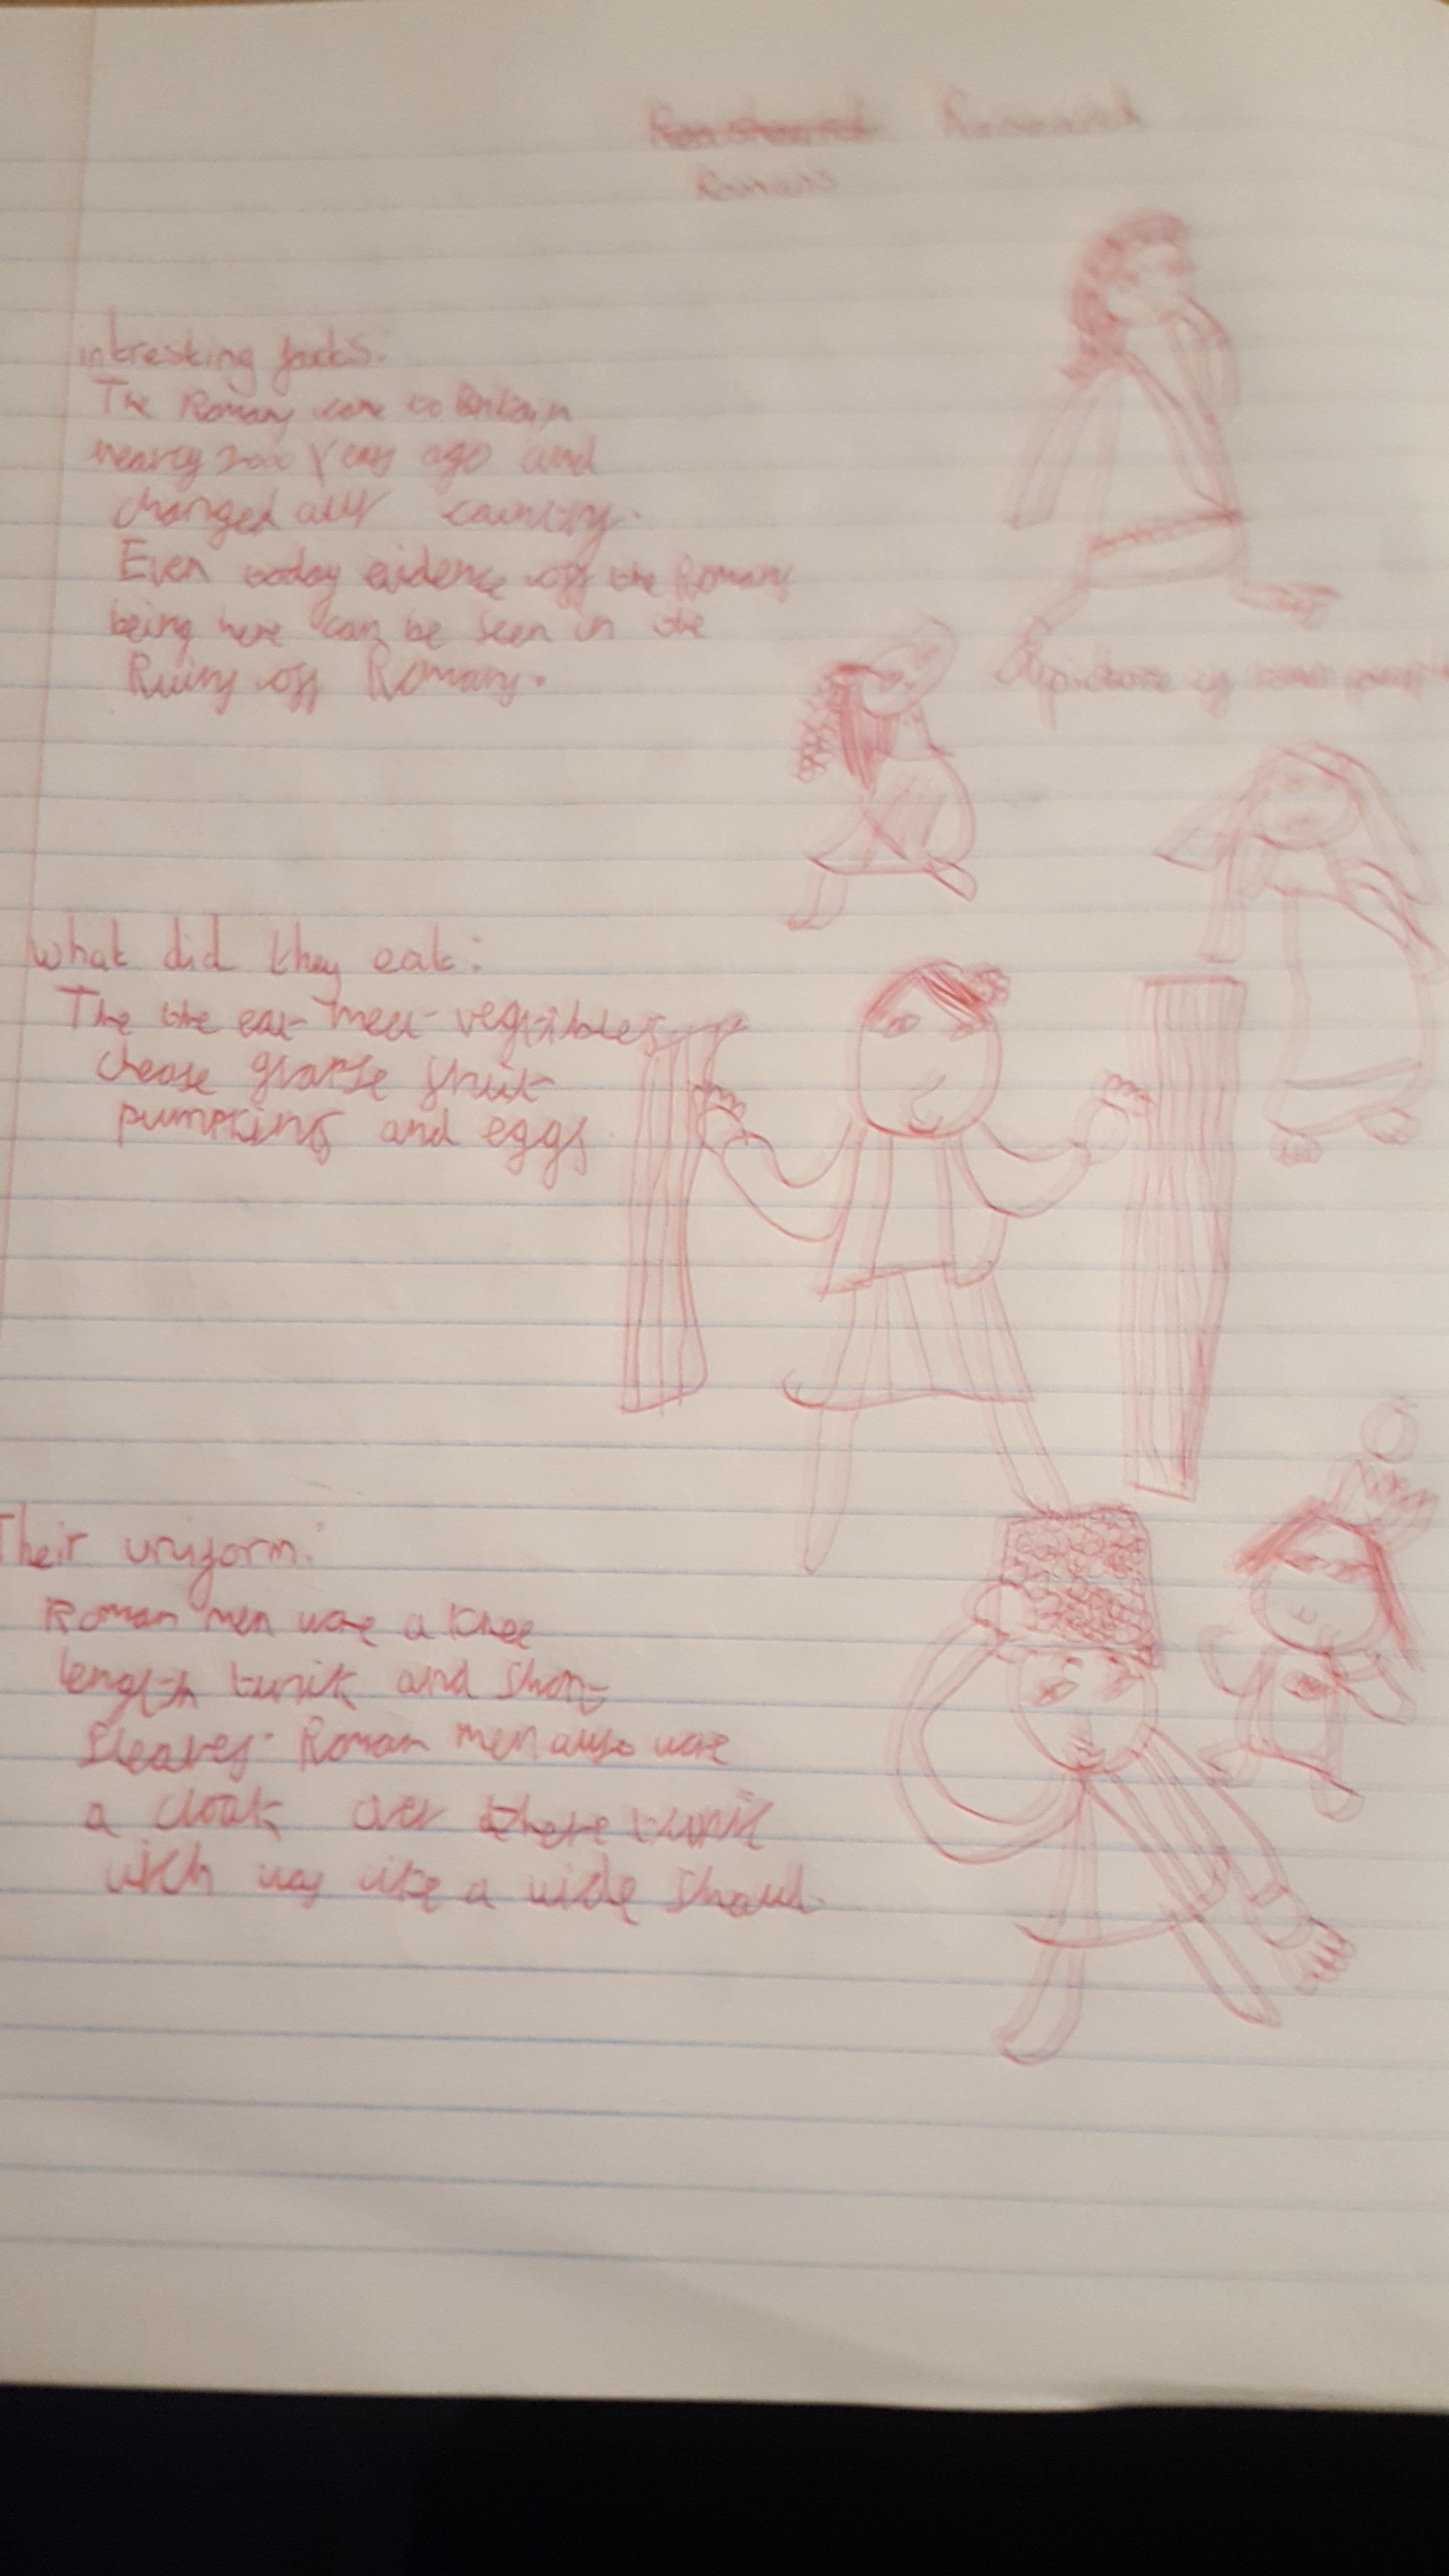 Romans
intresting facts:
The Romans came to Britain
nearly 2000 years ago and
changed our country.
Even today evidence off the Romans
being here can be seen in the
Ruins off Romans.
picture of roman
What did they eat:
The the eat meet vegetibles
chease grape fruit
pumpkins and eggs
Their uniform:
Roman men wore a knee
length tunik and short
Sleaves. Roman men also wore
a cloak over there tunik
wich was like a wide shawl.